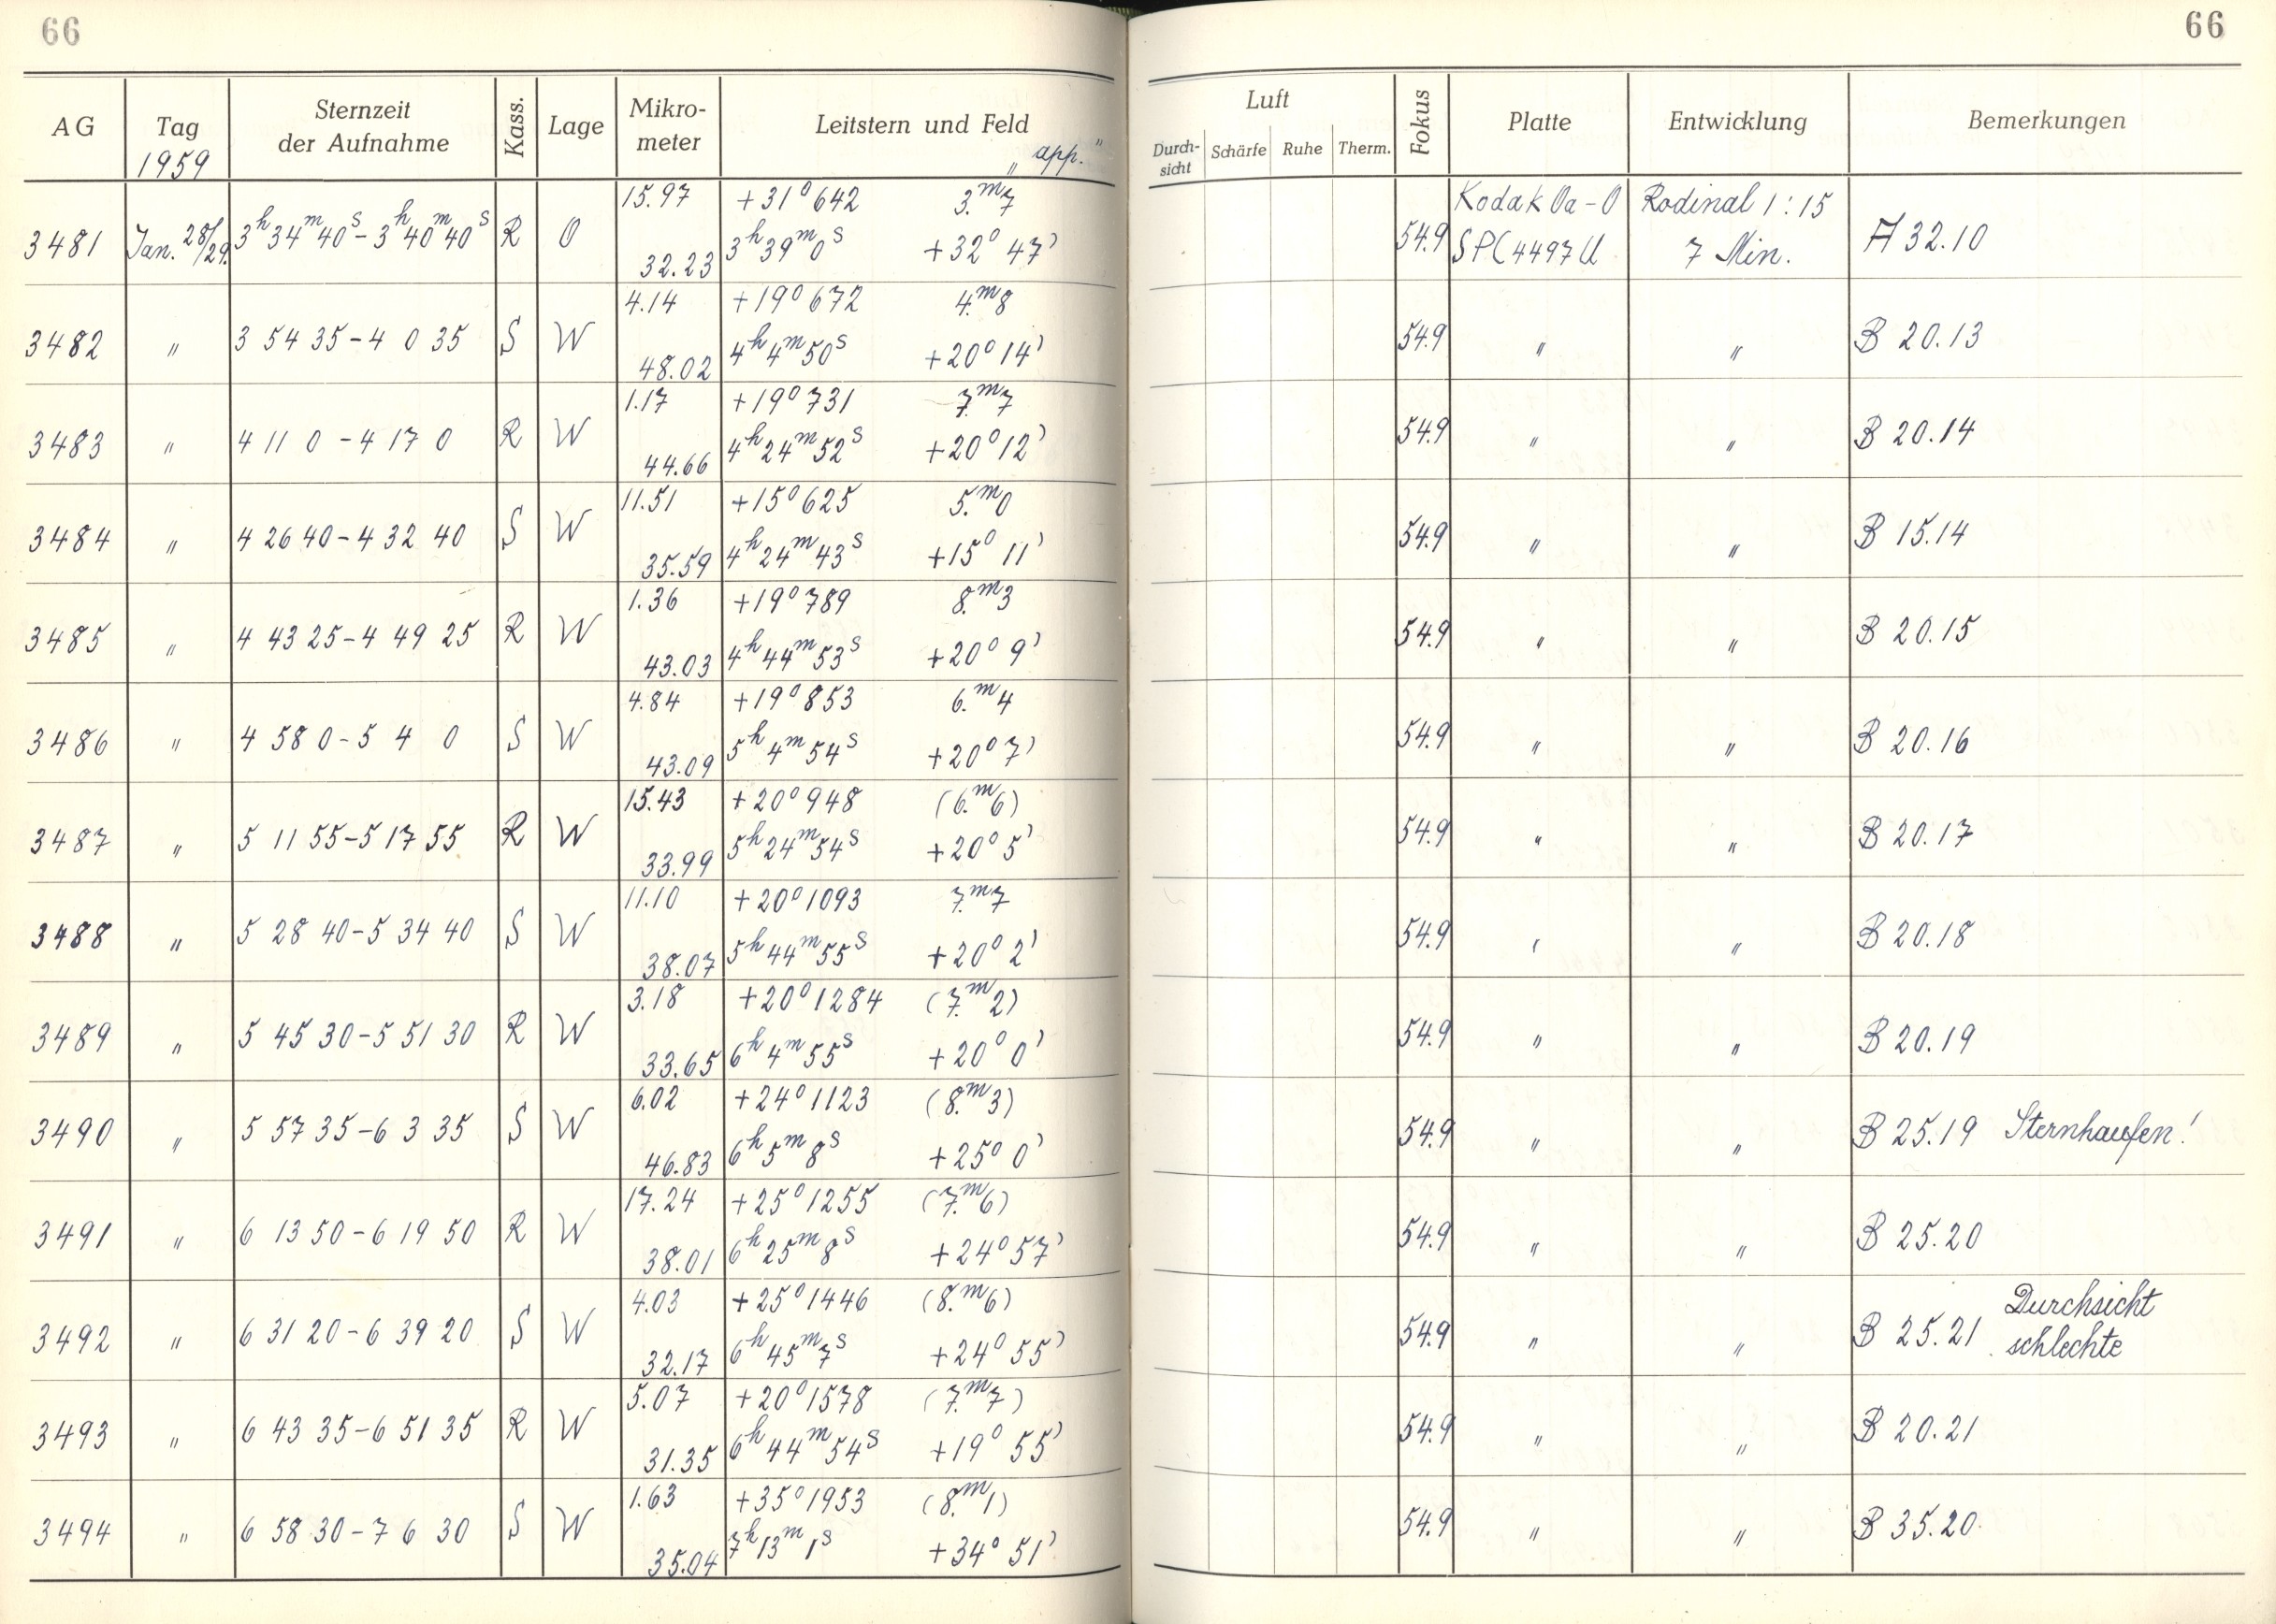 66
66
AG Tag Sternzeit der Aufnahme Kass. Lage Mikro-meter Leitstern und Feld Luft Durch-sicht Schärfe Ruhe Therm. Fokus Platte Entwicklung Bemerkungen
1959 „ app.“
15.97 +31°642 3.ᵐ7 Kodak Oa-O Rodinal 1:15
3481 Jan. 28/29. 3ʰ34ᵐ40ˢ-3ʰ40ᵐ40ˢ R O 32.23 3ʰ39ᵐ0ˢ +32° 47' 54.9 SPC4497U 7 Min. A 32.10
4.14 +19°672 4.ᵐ8
3482 " 3 54 35-4 0 35 S W 48.02 4ʰ4ᵐ50ˢ +20°14' 54.9 " " B 20.13
1.17 +19°731 7.ᵐ7
3483 " 4 11 0-4 17 0 R W 44.66 4ʰ24ᵐ52ˢ +20°12' 54.9 " " B 20.14
11.51 +15°625 5.ᵐ0
3484 " 4 26 40-4 32 40 S W 35.59 4ʰ24ᵐ43ˢ +15° 11' 54.9 " " B 15.14
1.36 +19°789 8.ᵐ3
3485 " 4 43 25-4 49 25 R W 43.03 4ʰ44ᵐ53ˢ +20° 9' 54.9 " " B 20.15
4.84 +19°853 6.ᵐ4
3486 " 4 58 0-5 4 0 S W 43.09 5ʰ4ᵐ54ˢ +20° 7' 54.9 " " B 20.16
15.43 +20°948 (6.ᵐ6)
3487 " 5 11 55-5 17 55 R W 33.99 5ʰ24ᵐ54ˢ +20° 5' 54.9 " " B 20.17
11.10 +20°1093 7.ᵐ7
3488 " 5 28 40-5 34 40 S W 38.07 5ʰ44ᵐ55ˢ +20° 2' 54.9 " " B 20.18
3.18 +20°1284 (7.ᵐ2)
3489 " 5 45 30-5 51 30 R W 33.65 6ʰ4ᵐ55ˢ +20° 0' 54.9 " " B 20.19
6.02 +24°1123 (8.ᵐ3)
3490 " 5 57 35-6 3 35 S W 46.83 6ʰ5ᵐ8ˢ +25° 0' 54.9 " " B 25.19 Sternhaufen!
17.24 +25°1255 (7.ᵐ6)
3491 " 6 13 50-6 19 50 R W 38.01 6ʰ25ᵐ8ˢ +24°57' 54.9 " " B 25.20
4.03 +25°1446 (8.ᵐ6) Durchsicht
3492 " 6 31 20-6 39 20 S W 32.17 6ʰ45ᵐ7ˢ +24° 55' 54.9 " " B 25.21 schlechte
5.07 +20°1578 (7.ᵐ7)
3493 " 6 43 35-6 51 35 R W 31.35 6ʰ44ᵐ54ˢ +19° 55' 54.9 " " B 20.21
1.63 +35°1953 (8.ᵐ1)
3494 " 6 58 30-7 6 30 S W 35.04 7ʰ13ᵐ1ˢ +34° 51' 54.9 " " B 35.20